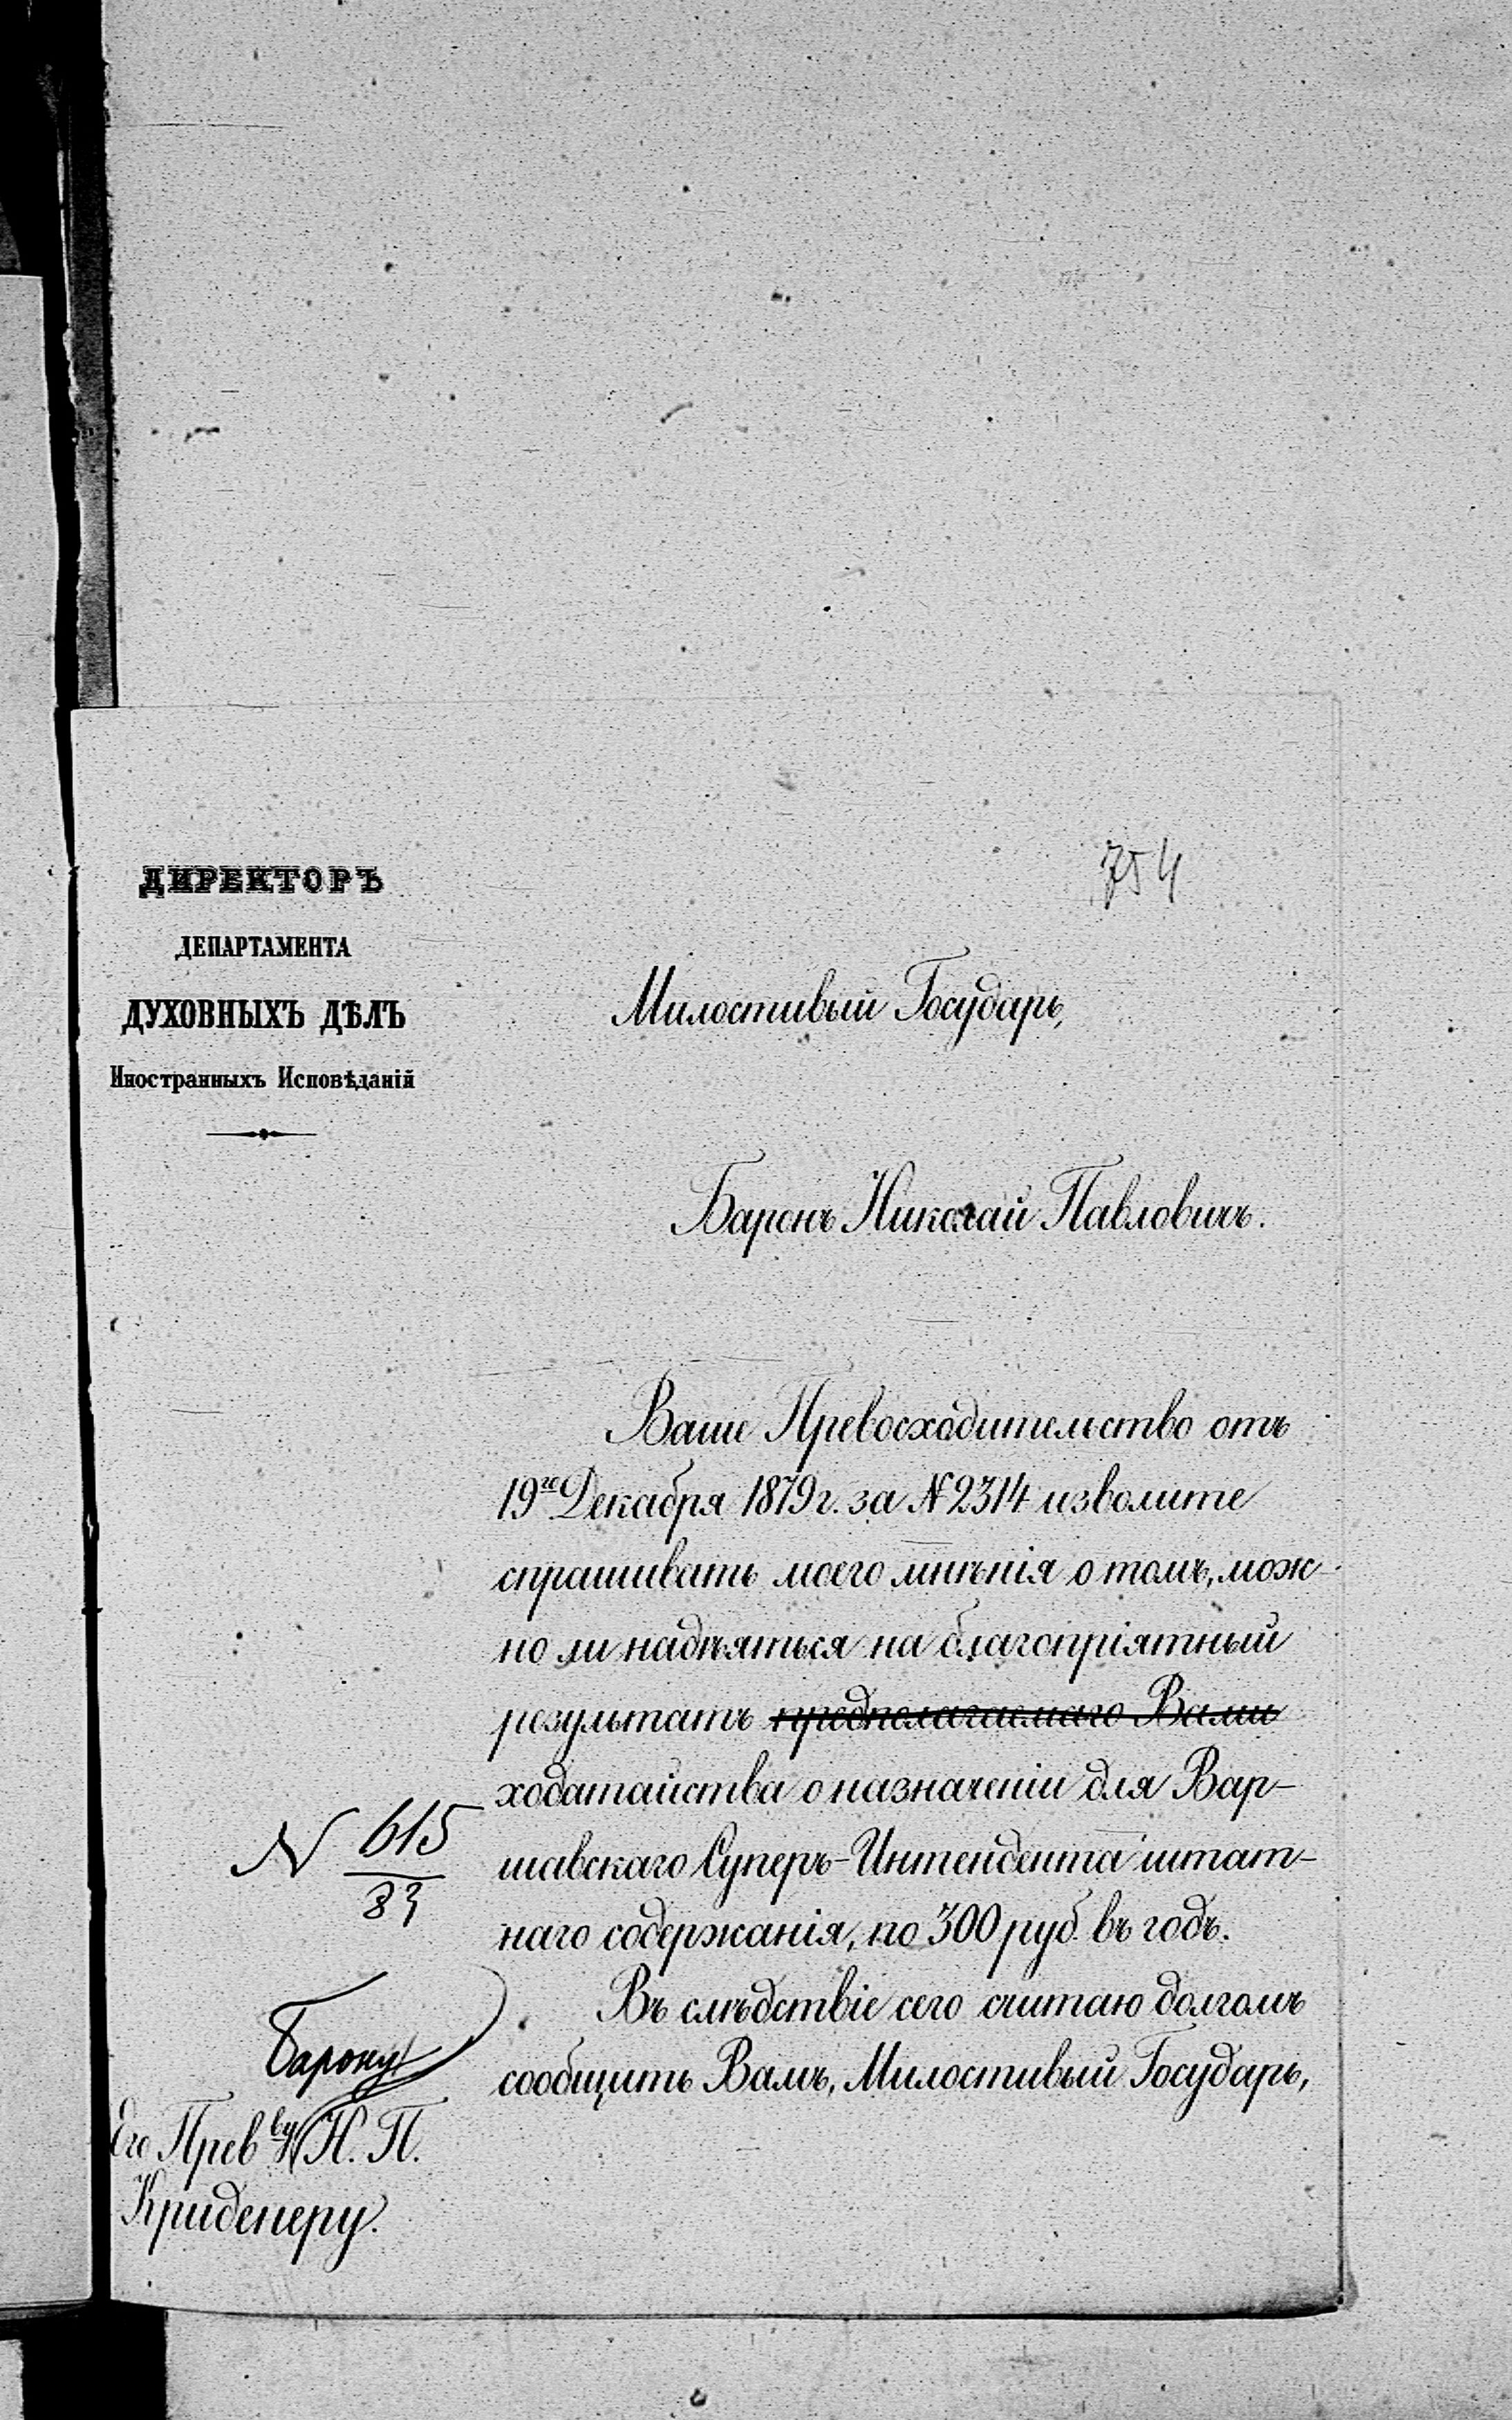 754
ДИРЕКТОРЪ
ДЕПАРТАМЕНТА
ДУХОВНЫХЪ ДѢЛЪ
Иностранныхъ Исповѣданій
Милостивый Государь,
Баронъ Николай Павловичъ.
Ваше Превосходительство отъ
19го Декабря 1879 г. за № 2314 изволите
спрашивать моего мнѣнія о томъ, мож-
но ли надѣяться на благопріятный
результатъ предполагаемаго Вами
ходатайства о назначеніи для Вар-
шавскаго Суперъ-Интендента штат-
наго содержанія, по 300 руб. въ годъ.
Въ слѣдствіе сего считаю долгомъ
сообщить Вамъ, Милостивый Государь,
N 615
83
Барону
Его Прев ву Н. П.
Криденеру.